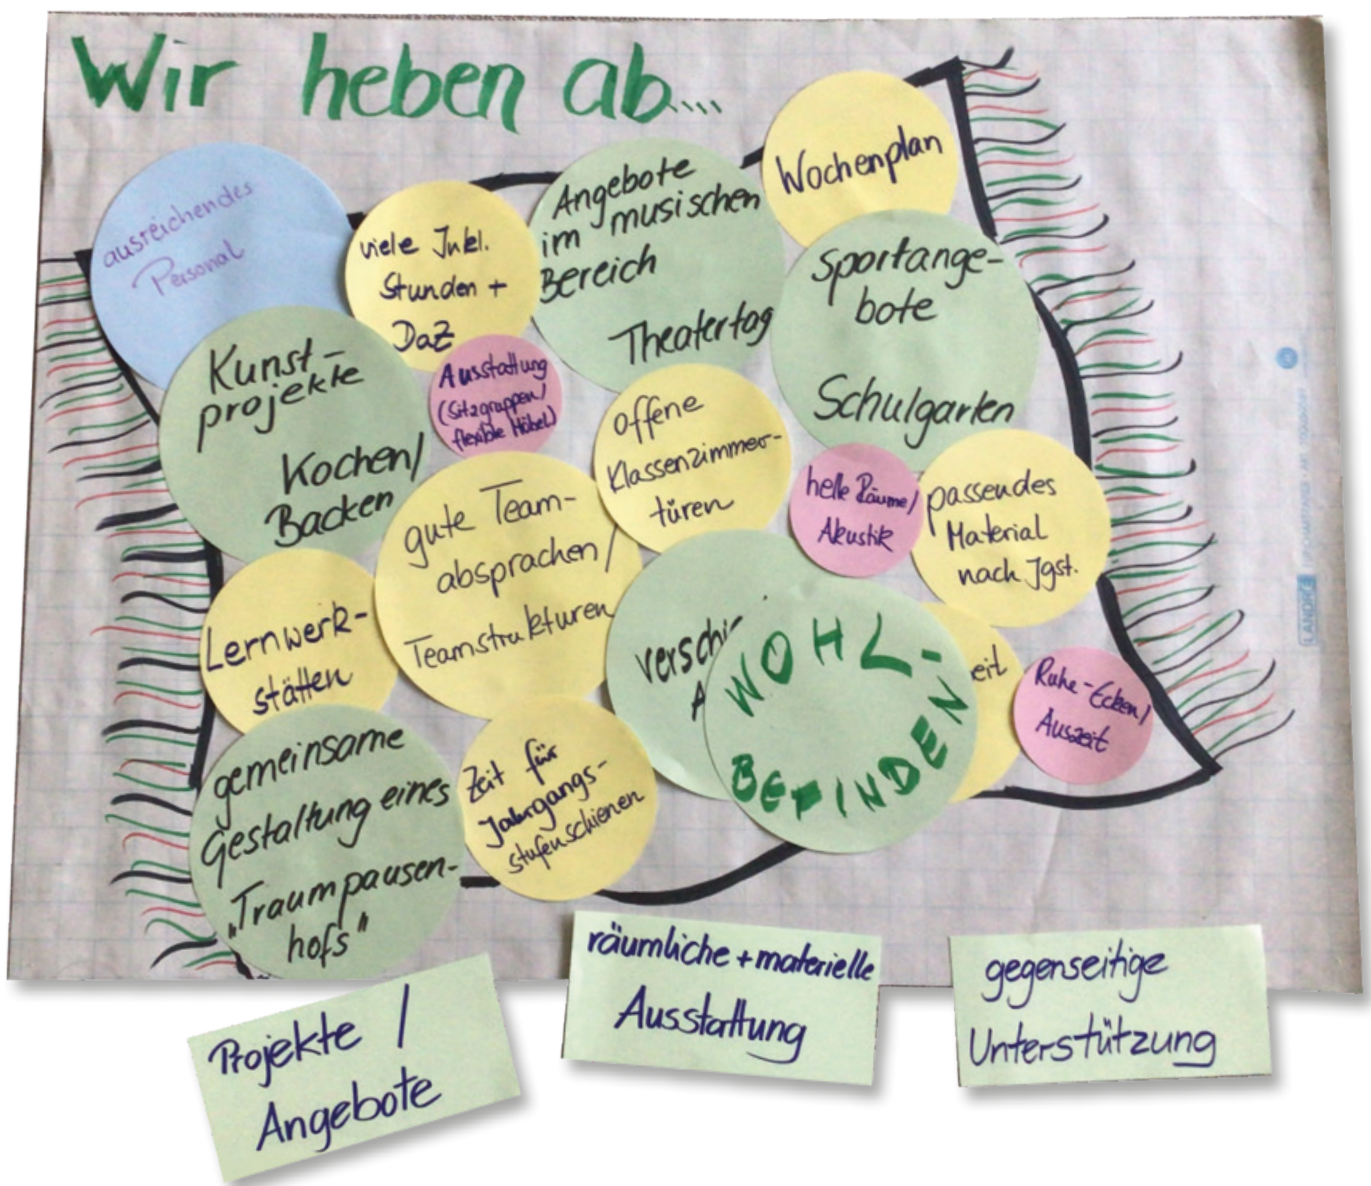 Wir heben ab...
ausreichendes
Personal
viele Inkl.
Stunden +
DaZ
Angebote
im musischen
Bereich
Theatertag
Wochenplan
Sportange-
bote
Schulgarten
Kunst-
projekte
Kochen/
Backen
Ausstattung
(Sitzgruppen/
flexible Möbel)
offene
Klassenzimmer-
türen
helle Räume/
Akustik
passendes
Material
nach Jgst.
gute Team-
absprachen/
Teamstrukturen
Lernwerk-
stätten
verschi
A
WOHL-
BEFINDEN
eit
Ruhe-Ecken/
Auszeit
gemeinsame
Gestaltung eines
"Traumpausen-
hofs"
Zeit für
Jahrgangs-
stufenschienen
LANDRÉ
Projekte /
Angebote
räumliche + materielle
Ausstattung
gegenseitige
Unterstützung